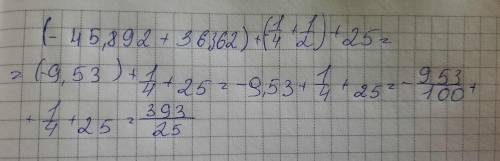 (- 45,892 + 36,362) + (1/4 + 1/2) + 25 =
= (-9,53) + 1/4 + 25 = -9,53 + 1/4 + 25 = - 953/100 +
+ 1/4 + 25 = 393/25